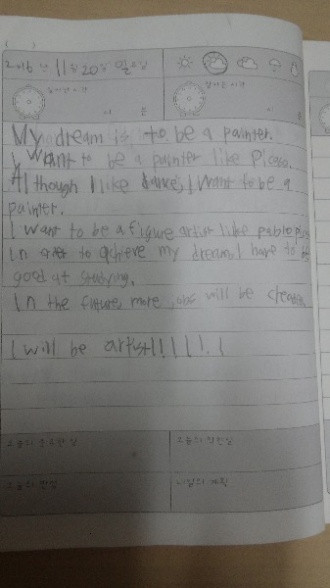 2016년 11월 20일 일요일
My dream is to be a painter.
I want to be a painter like Picaso.
Although I like dance, I want to be a
painter.
I want to be a figure artist like pablo
In order to achieve my dream, I have to be
good at studying.
In the future, more jobs will be
I will be artist!!!!!!!
오늘의 중요한 일
오늘의 착한 일
오늘의 반성
내일의 계획